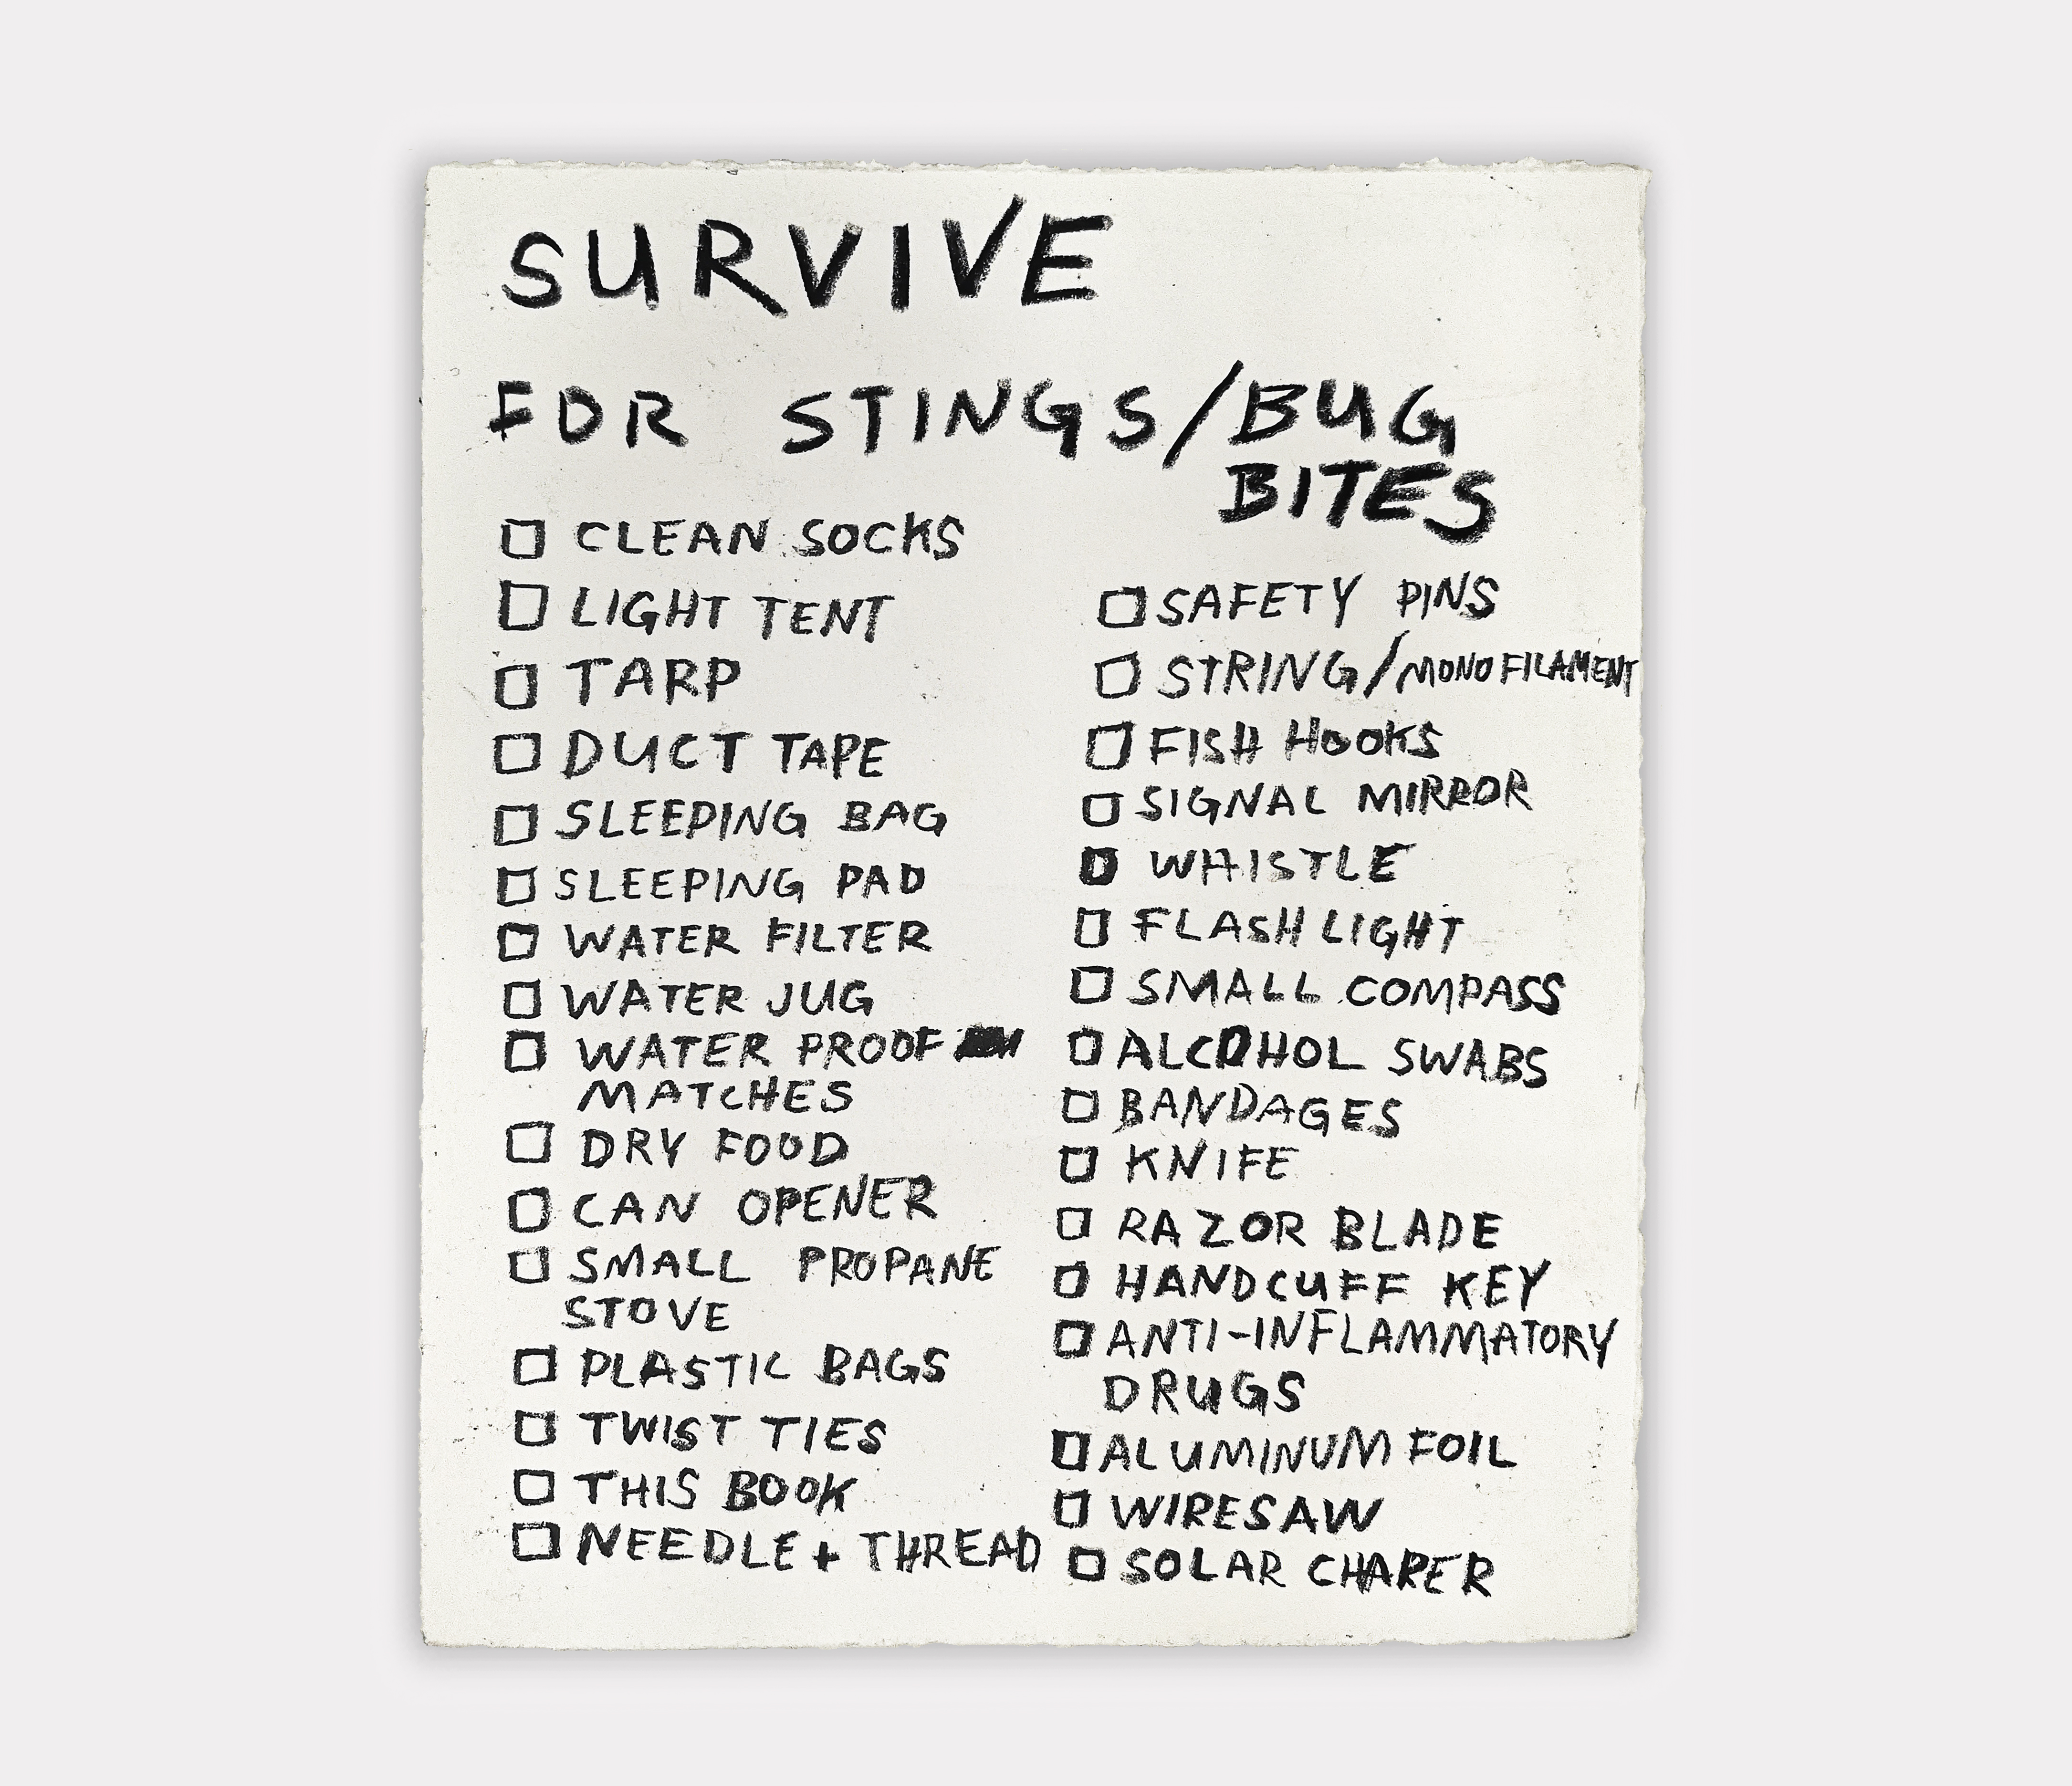 SURVIVE
FOR STINGS/BUG
BITES
CLEAN SOCKS
LIGHT TENT
TARP
DUCT TAPE
SLEEPING BAG
SLEEPING PAD
WATER FILTER
WATER JUG
WATER PROOF
MATCHES
DRY FOOD
CAN OPENER
SMALL PROPANE
STOVE
PLASTIC BAGS
TWIST TIES
THIS BOOK
NEEDLE + THREAD
SAFETY PINS
STRING/MONOFILAMENT
FISH HOOKS
SIGNAL MIRROR
WHISTLE
FLASHLIGHT
SMALL COMPASS
ALCOHOL SWABS
BANDAGES
KNIFE
RAZOR BLADE
HANDCUFF KEY
ANTI-INFLAMMATORY
DRUGS
ALUMINUM FOIL
WIRESAW
SOLAR CHARER